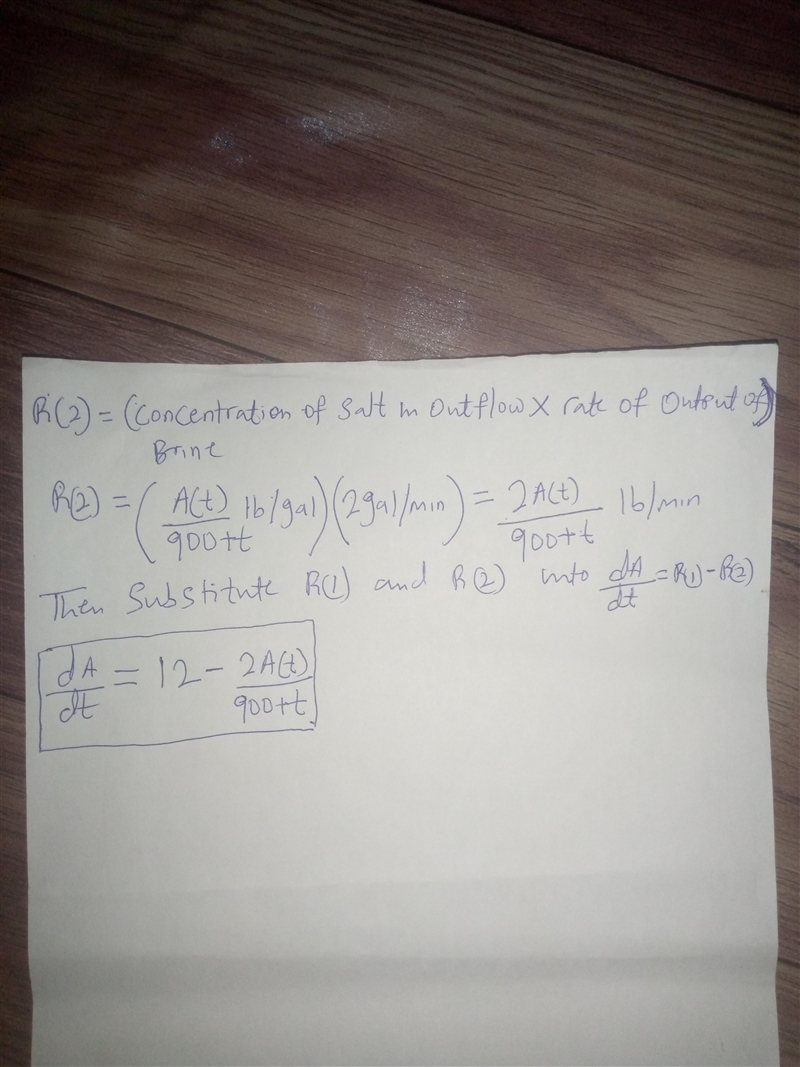 R(2) = (Concentration of Salt in Outflow X rate of Output of)
Brine
R(2) = (A(t)/900+t lb/gal)(2gal/min) = 2A(t)/900+t lb/min
Then Substitute R(1) and R(2) into dA/dt = R(1) - R(2)
dA/dt = 12 - 2A(t)/900+t